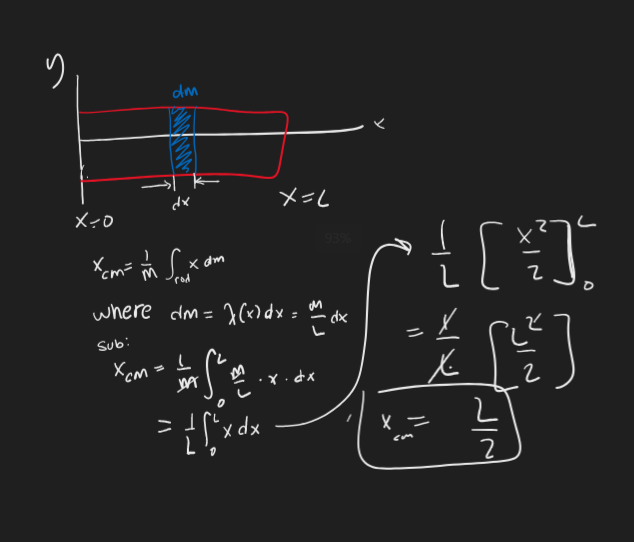 y
dm
x
dx
x=0
x=L
57%
x_cm = 1/M ∫_rod x dm
where dm = λ(x)dx = M/L dx
sub:
x_cm = 1/M ∫_0^L M/L · x · dx
= 1/L ∫_0^L x dx
1/L [x²/2]_0^L
= 1/L [L²/2]
x_cm = L/2